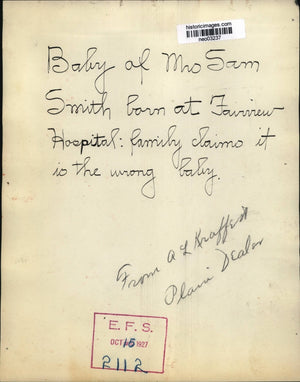 historicimages.com
neo03237
Baby of Mrs Sam
Smith born at Fairview
Hospital: family claims it
is the wrong baby.
From A L
Plain Dealer
E. F. S.
OCT 15 1927
2112